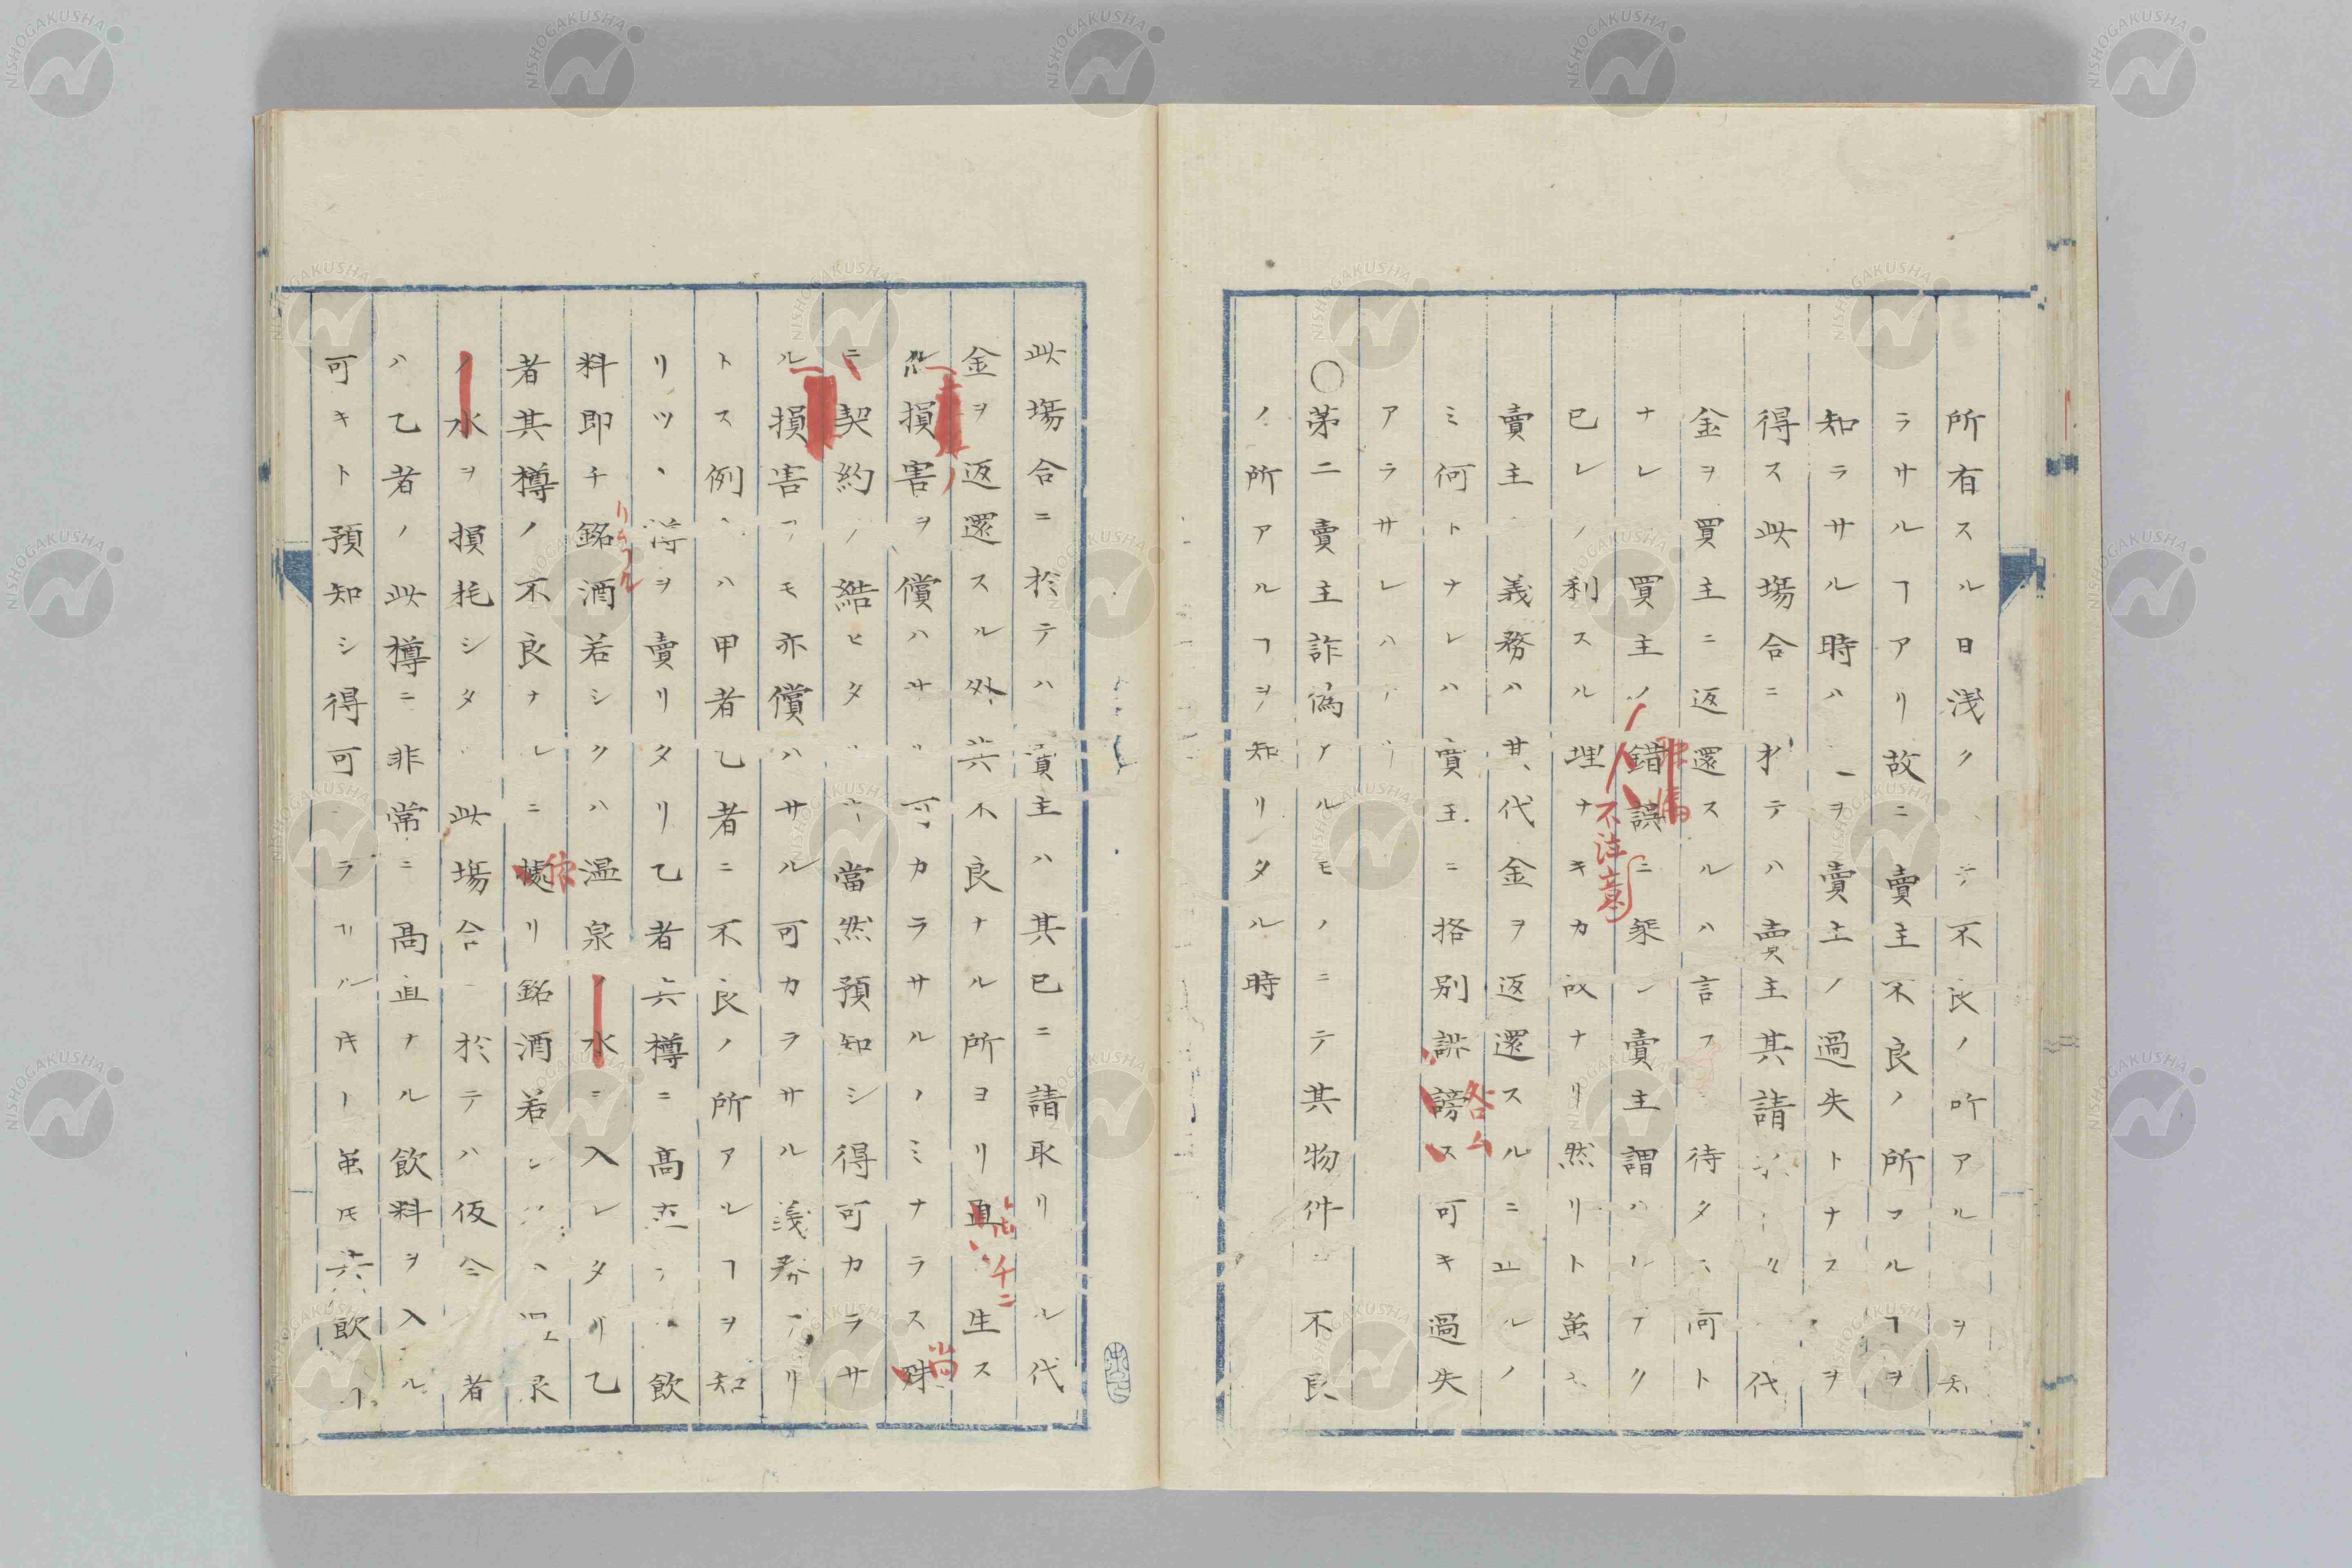 所有スル日浅クシテ不良ノ所アルヲ知
ラサルヿアリ故ニ賣主不良ノ所アルヿヲ
知ラサル時ハ之ヲ賣主ノ過失トナスヲ
得ス此場合ニ於テハ賣主其請取リ代
金ヲ買主ニ返還スルハ言フ待タス何ト
ナレ買主ノ錯誤ニ乗シ賣主謂ハレナク
已レノ利スル理ナキカ故ナリ然リト虽
賣主ノ義務ハ其代金ヲ返還スルニ止ルノ
ミ何トナレハ賣主ニ格別誹謗ス可キ過失
アラサレハナリ
〇苐二賣主詐偽アルモノニテ其物件ニ不良
ノ所アルヿヲ知リタル時
此場合ニ於テハ賣主ハ其已ニ請取リタル代
金ヲ返還スル外其不良ナル所ヨリ直生ス
ル損害ヲ償ハサル可カラサルノミナラス
ニ契約ノ結ヒタル當然預知シ得可カラサ
ル損害アモ亦償ハサル可カラサル義務アリ
トス例ヘハ甲者乙者ニ不良ノ所アルヿヲ知
リツヽ樽ヲ賣リタリ乙者其樽ニ髙直ナル飲
料即チ銘酒若シクハ温泉ノ水ニ入レタリ乙
者其樽ノ不良ナルニ據リ銘酒若シクハ温泉
ノ水ヲ損耗シタリ此場合ニ於テハ仮令甲者
ハ乙者ノ此樽ニ非常ニ髙直ナル飲料ヲ入ル
可キト預知シ得可カラサルモト虽モ其飲
非偽
不注意
咎ム
ニ
直チニ
尚
リタル
依